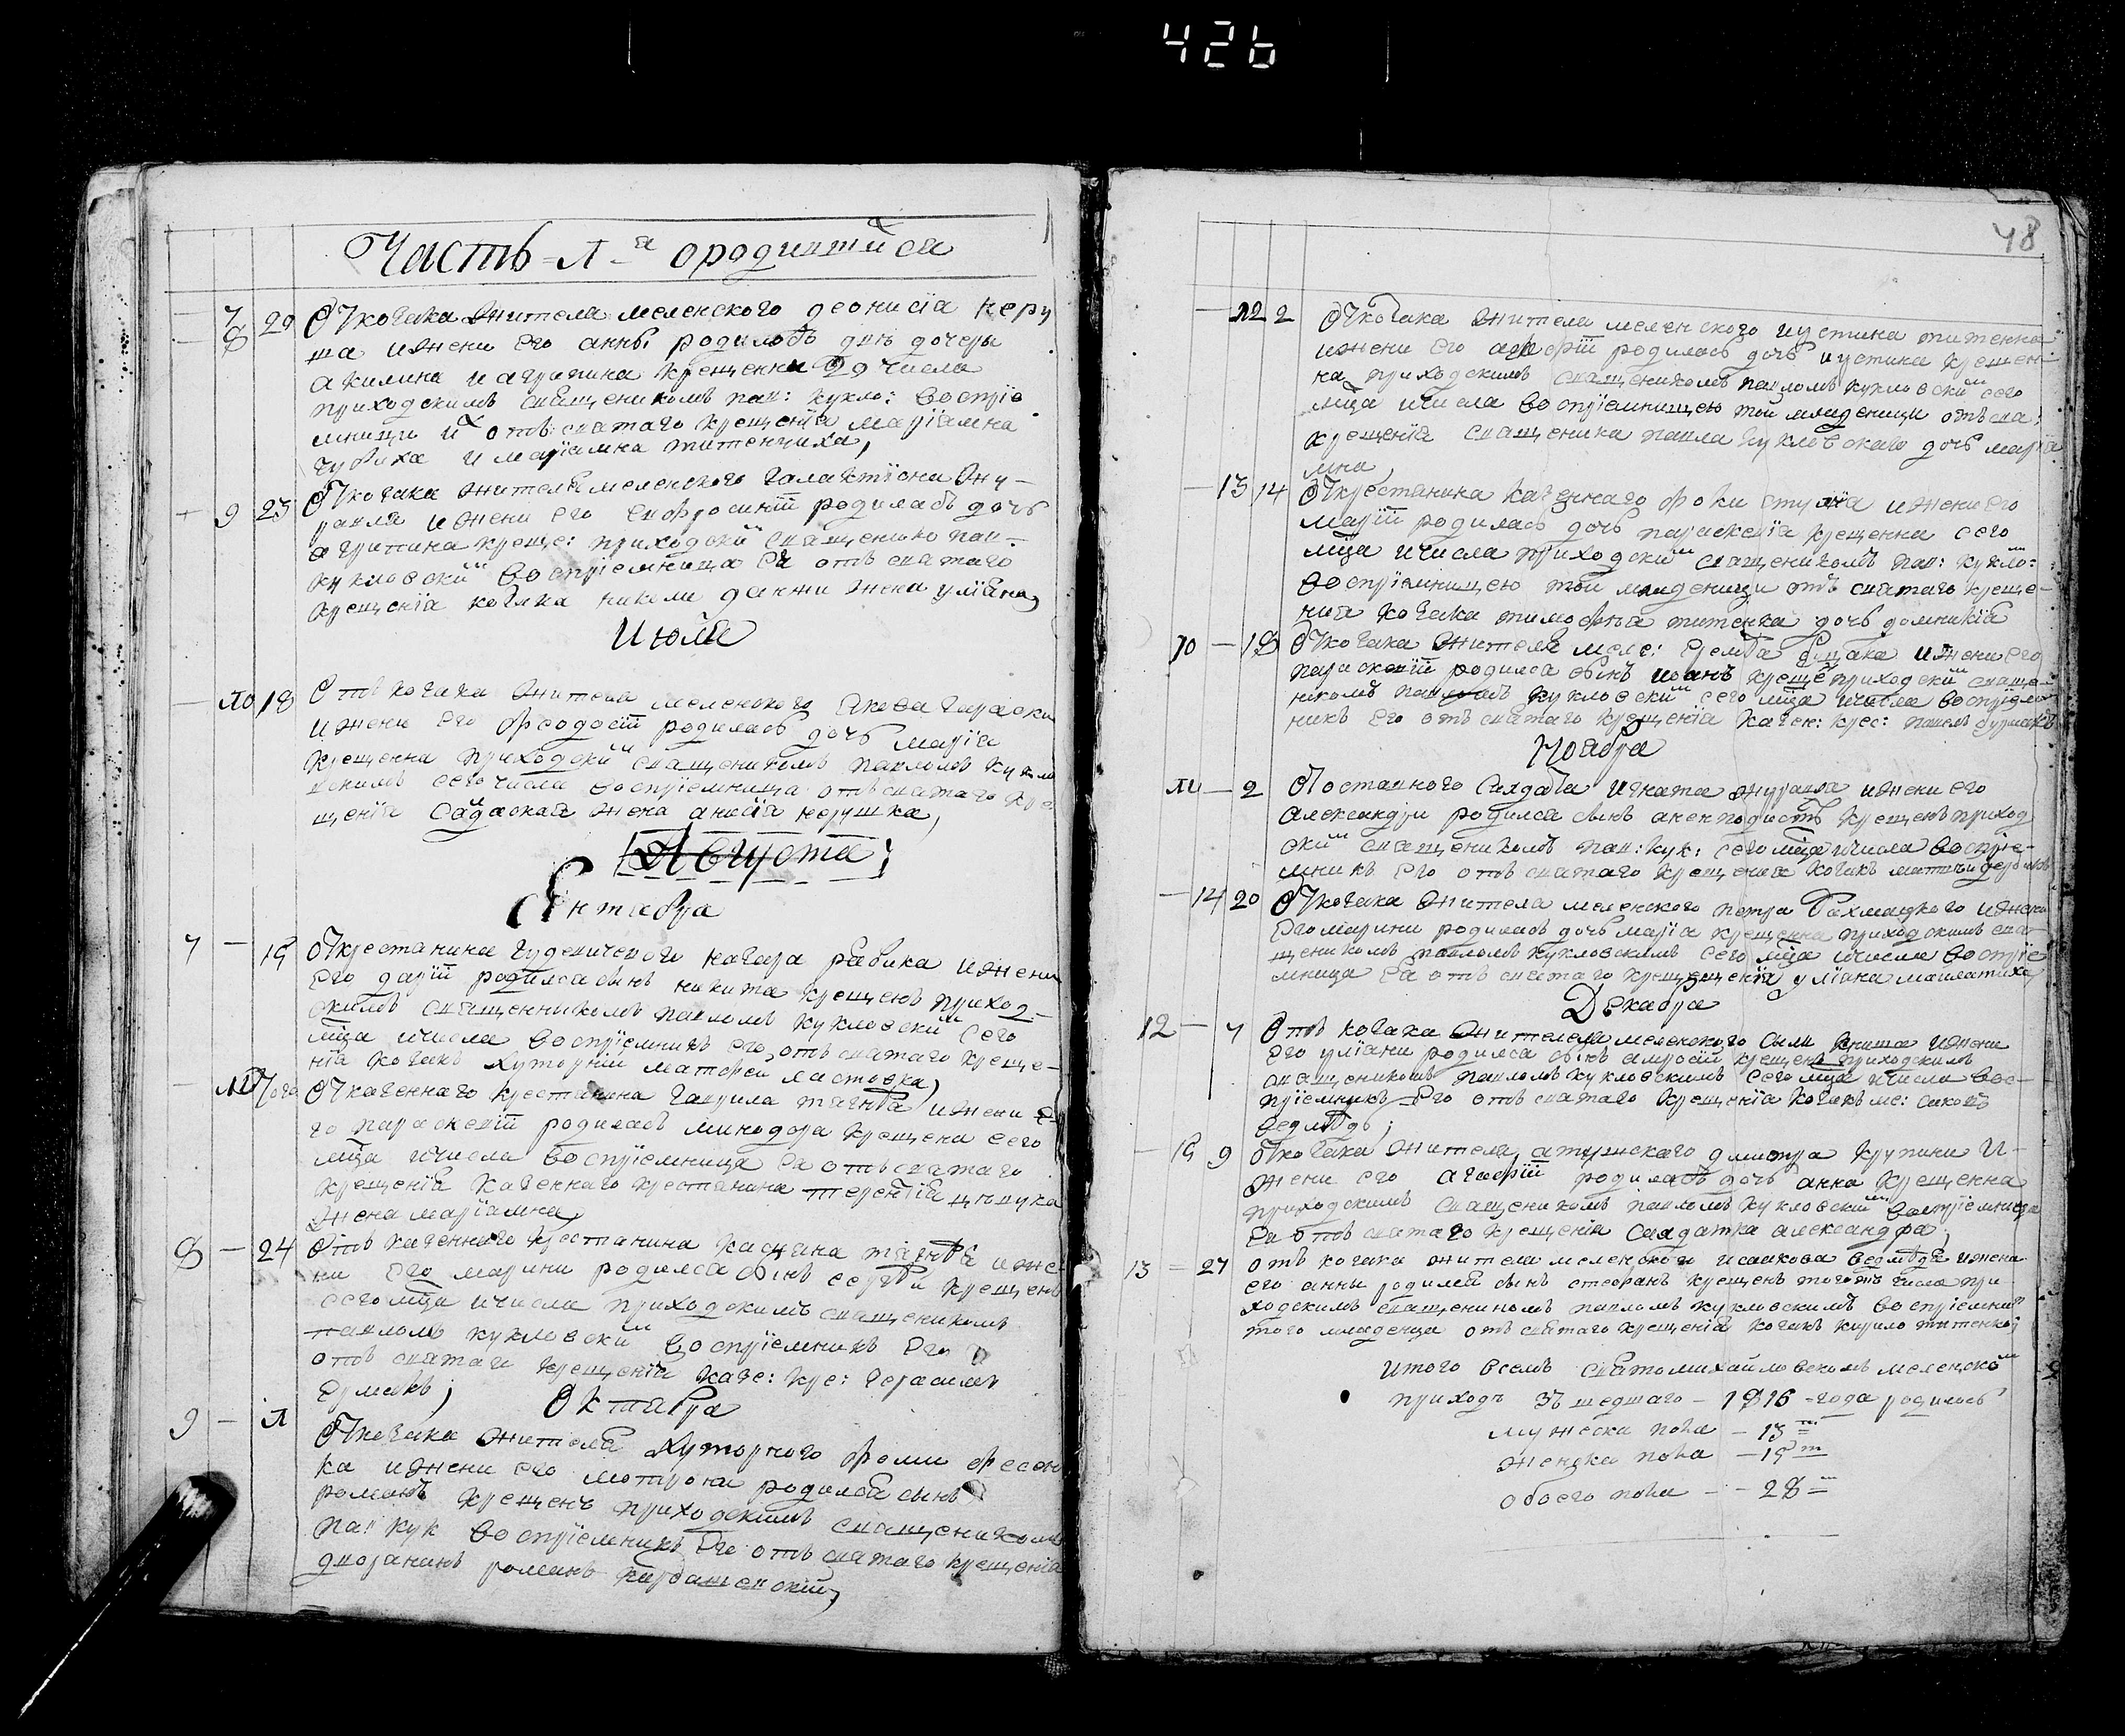 426
Часть 1-а о родившийся
7 8 29 От козака жителя меленского деонисїа керу
ша и жени его анны родилось двѣ дочеры
акилина и агрипина крещенни 29 числа
приходскимъ священикомъ пав: кукло: воспрїе
мници ихъ отъ святаго крещенїя марїамна
и марїамна титенчиха,
9 23 От козака жителя меленского галактїона жу-
равля и жени его ефросинїй родилась дочь
агрипина креще: приходскїй священико пав-
кукловскїй воспрїемница ея отъ святаго
крещенїя козака николи жена улїана,
Июля
10 18 Отъ козака жителя меленского Якова
и жени его феодосїй родилась дочь марїя
крещенна приходскїй священикомъ павломъ кукло
вскимъ сего числа воспрїемница отъ святаго кре
щенїя жена анасїя керушка,
Августа
Сентября
7 15 От крестянина назара рябика и жени
его дарїй родился сынъ никита крещенъ приход-
скимъ священныкомъ павломъ кукловскїй сего
мца и числа воспрїемникъ его отъ святаго креще-
нїя козакъ хуторнїй матфей ластовка,
От казенного крестянина гаврила и жени е
го параскевїй родилась минодора крещена сего
мца и числа воспрїемница ея отъ святаго
крещенїя казенного крестянина терентїя цецука
жена марїамна,
8 24 Отъ казенного крестянина касяна и же
ни его марини родился сынъ сергѣй крещенъ
сего мца и числа приходскимъ священикомъ
павломъ кукловскїй воспрїемникъ его
отъ святаги крещенїя казе: кре: герасимъ
ермакъ;
Октября
9 1 От козака жителя хуторного фоми фесен
ка и жени его мотрони родился сынъ
романъ крещенъ приходскимъ священикомъ
па: кук воспрїемникъ его отъ святаго крещенїя
дворанинъ романъ кардашевскїй,
48
12 2 От козака жителя меленского иустина титенка
и жени его родилась дочь иустина крещен-
на приходскимъ священикомъ павломъ кукловскїй сего
мца и числа воспрїемницею той младеници отъ свя:
крещенїя священика павла кукловскаго дочь марїа
мна,
13 14 От крестянина казеннаго фоки и жени его
марїй родилась дочь параскевїя крещенна сего
мца и числа приходскїй священикомъ пав: кукло:
воспрїемницею той младеници отъ святаго креще-
нїя козака тимофея титенка дочь домникїя
10 18 От козака жителя меле: еремѣа и жени его
параскевїй родился сынъ иоанъ креще приходскїй свяще
никомъ павломъ кукловскїй сего мца и числа воспрїем
никъ его отъ святаго крещенїя казен: крес: павелъ
Ноября
11 2 От оставного салдата игната журавля и жени его
александри родился сынъ анемподистъ крещенъ приход
скїй священикомъ пав: кук: сего мца и числа воспрїе-
мникъ его отъ святаго крещенїя козакъ
14 20 От козака жителя меленского петра бахмацкого и жени
его марини родилась дочь марїя крещенна приходскимъ свя
щеникомъ павломъ кукловскимъ сего мца и числа воспрїе
мница ея отъ святаго крещенїя улїана
Декабря
12 4 Отъ козака жителя меленского и жени
его улїани родился сынъ амросїй крещенъ приходскимъ
священикомъ павломъ кукловскимъ сего мца и числа вос-
прїемникъ его отъ святаго крещенїя козакъ ме:
ведмѣдь;
15 9 От козака жителя атюшского дмитра крупини и
жени его агафїй родилась дочь анна крещенна
приходскимъ священикомъ павломъ кукловскїй воспрїемница
ея отъ святаго крещенїя салдатка александра,
13 27 отъ козака жителя меленского исаакова ведмѣдя и жени
его анны родился сынъ стефанъ крещенъ того жъ числа при
ходскимъ священикомъ павломъ кукловскимъ воспрїемни
того младенца отъ святаго крещенїя козакъ кирило титенко;
Итого всемъ святомихайловскомъ меленско
приходѣ зъ шедшаго - 1816 - года родилось
мужеска пола - 13
женска пола - 15
обоего пола - 28